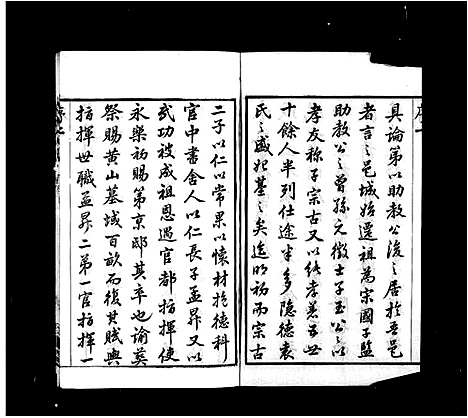 具論第以助教公後之居於吾邑
者言之邑城始遷祖為宗國子監
助教公之曾孫元徵士子玉公之以
孝友称子宗古又以純孝著五世
十餘人半列仕途半多隐德袁
氏之盛妃基之矣迨明初而宗古
二子以仁以常果以懷材抱德科
官中書舍人以仁長子孟昇又以
武功被成祖恩遇官都指揮使
永樂初賜第京邸其卒也諭葬
祭賜黃山墓域百畝而復其賦與
指揮世職孟昇二第一官指揮一